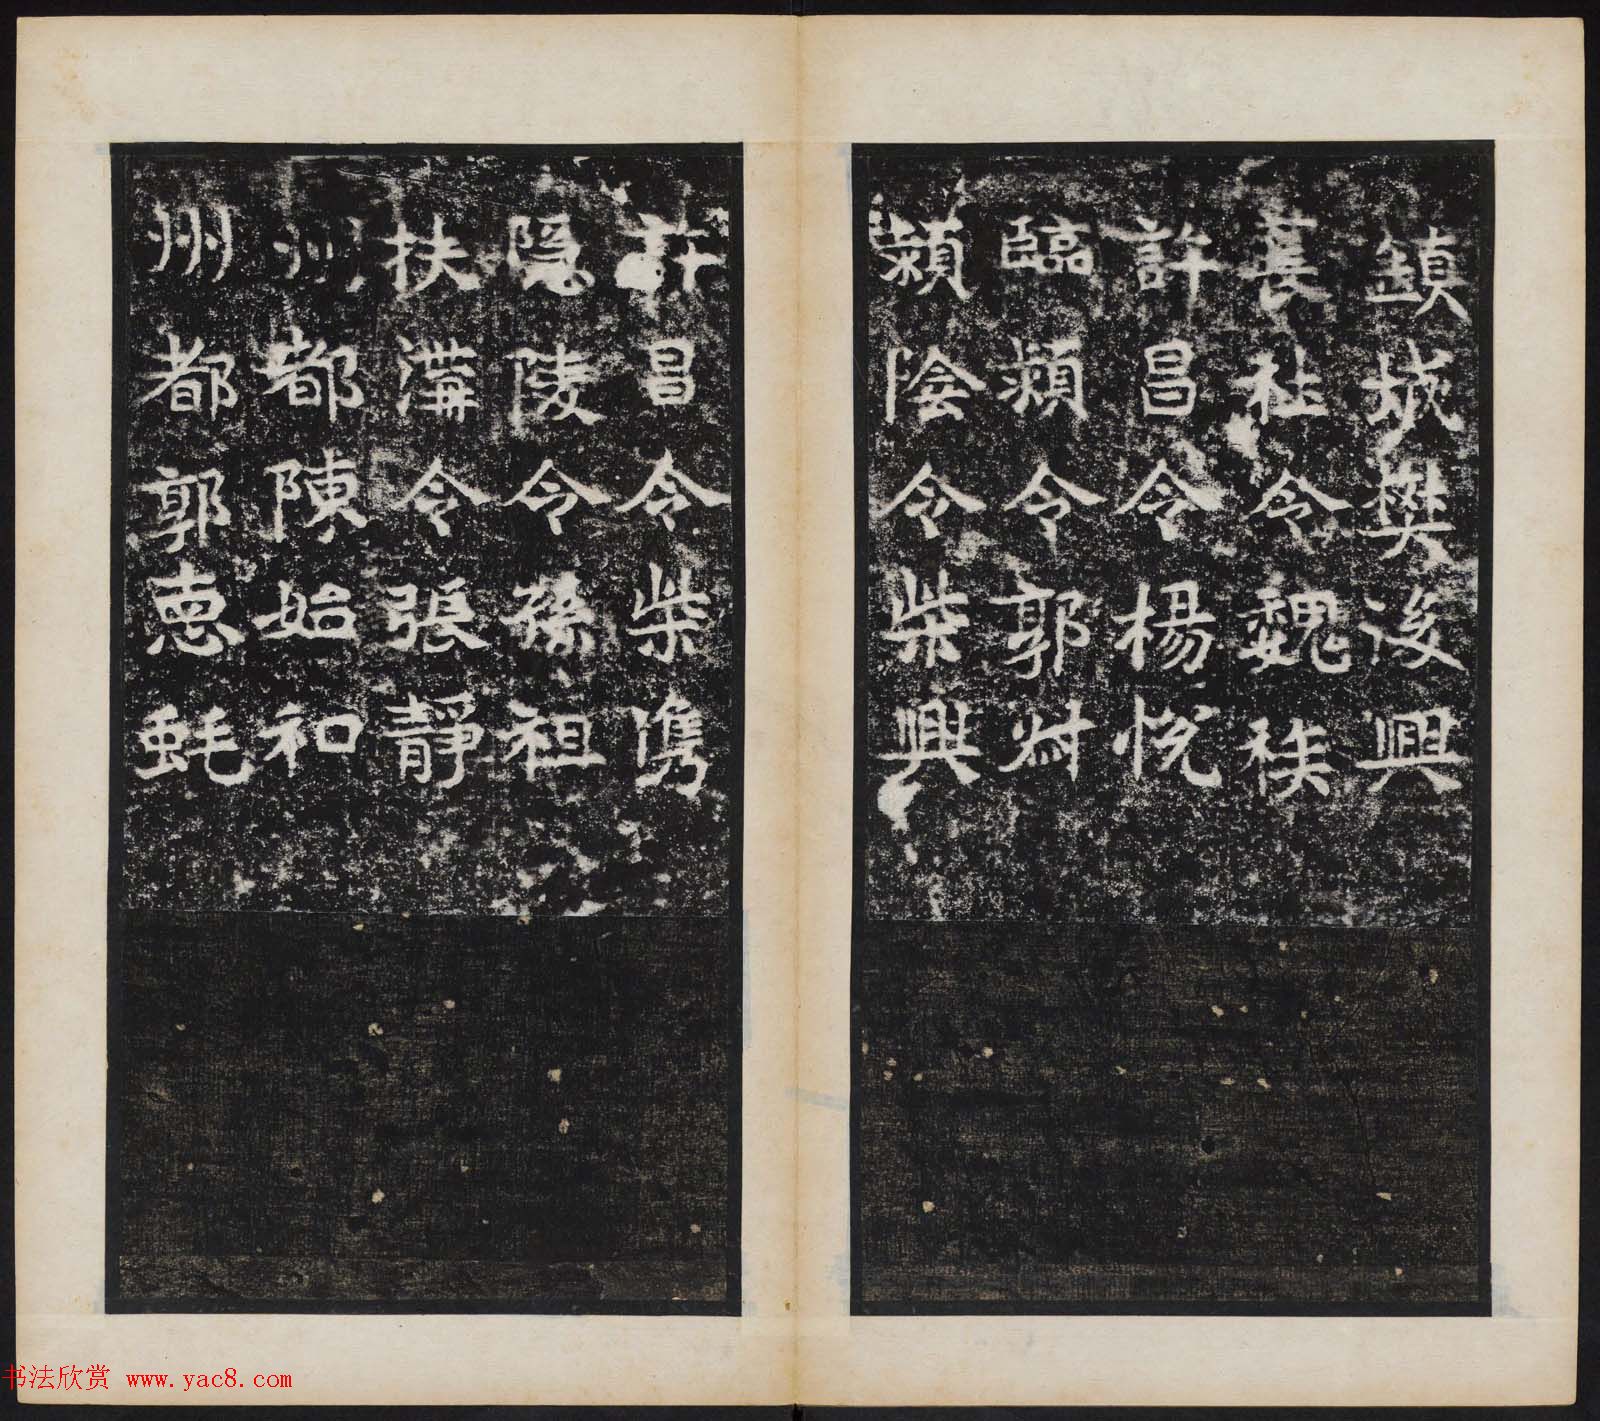 鎮城樊後興
萇社令魏秩
許昌令楊悅
臨潁令郭
潁陰令柴興
許昌令柴儁
隱陵令孫祖
扶溝令張靜
州都陳始和
州都郭惠蚝
书法欣赏 www.yac8.com